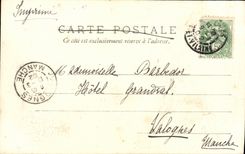 Imprimé
CARTE POSTALE
Ce côté est exclusivement réservé à l'adresse.
MANCHE
Mademoiselle Bérbedor
Hôtel Grandval
Valognes
Manche